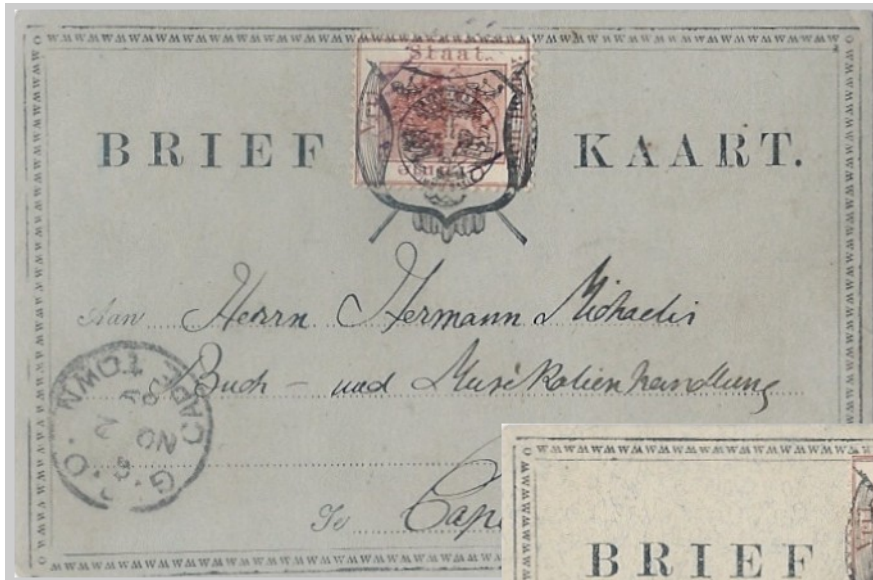 Staat.
BRIEF KAART.
Aan Herrn Hermann Michaelis
Buch - und Musikalienhandlung
Te Cape
G.P.O. CAPE TOWN
NO 2
BRIEF